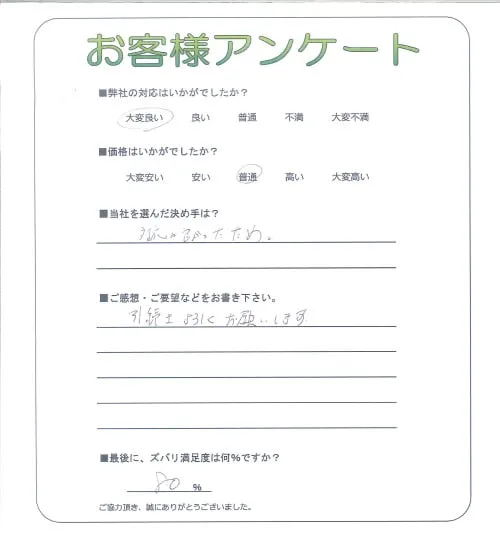 お客様アンケート
■弊社の対応はいかがでしたか？
大変良い 良い 普通 不満 大変不満
■価格はいかがでしたか？
大変安い 安い 普通 高い 大変高い
■当社を選んだ決め手は？
ため。
■ご感想・ご要望などをお書き下さい。
引続き よろしく お願いします
■最後に、ズバリ満足度は何%ですか？
80 %
ご協力頂き、誠にありがとうございました。